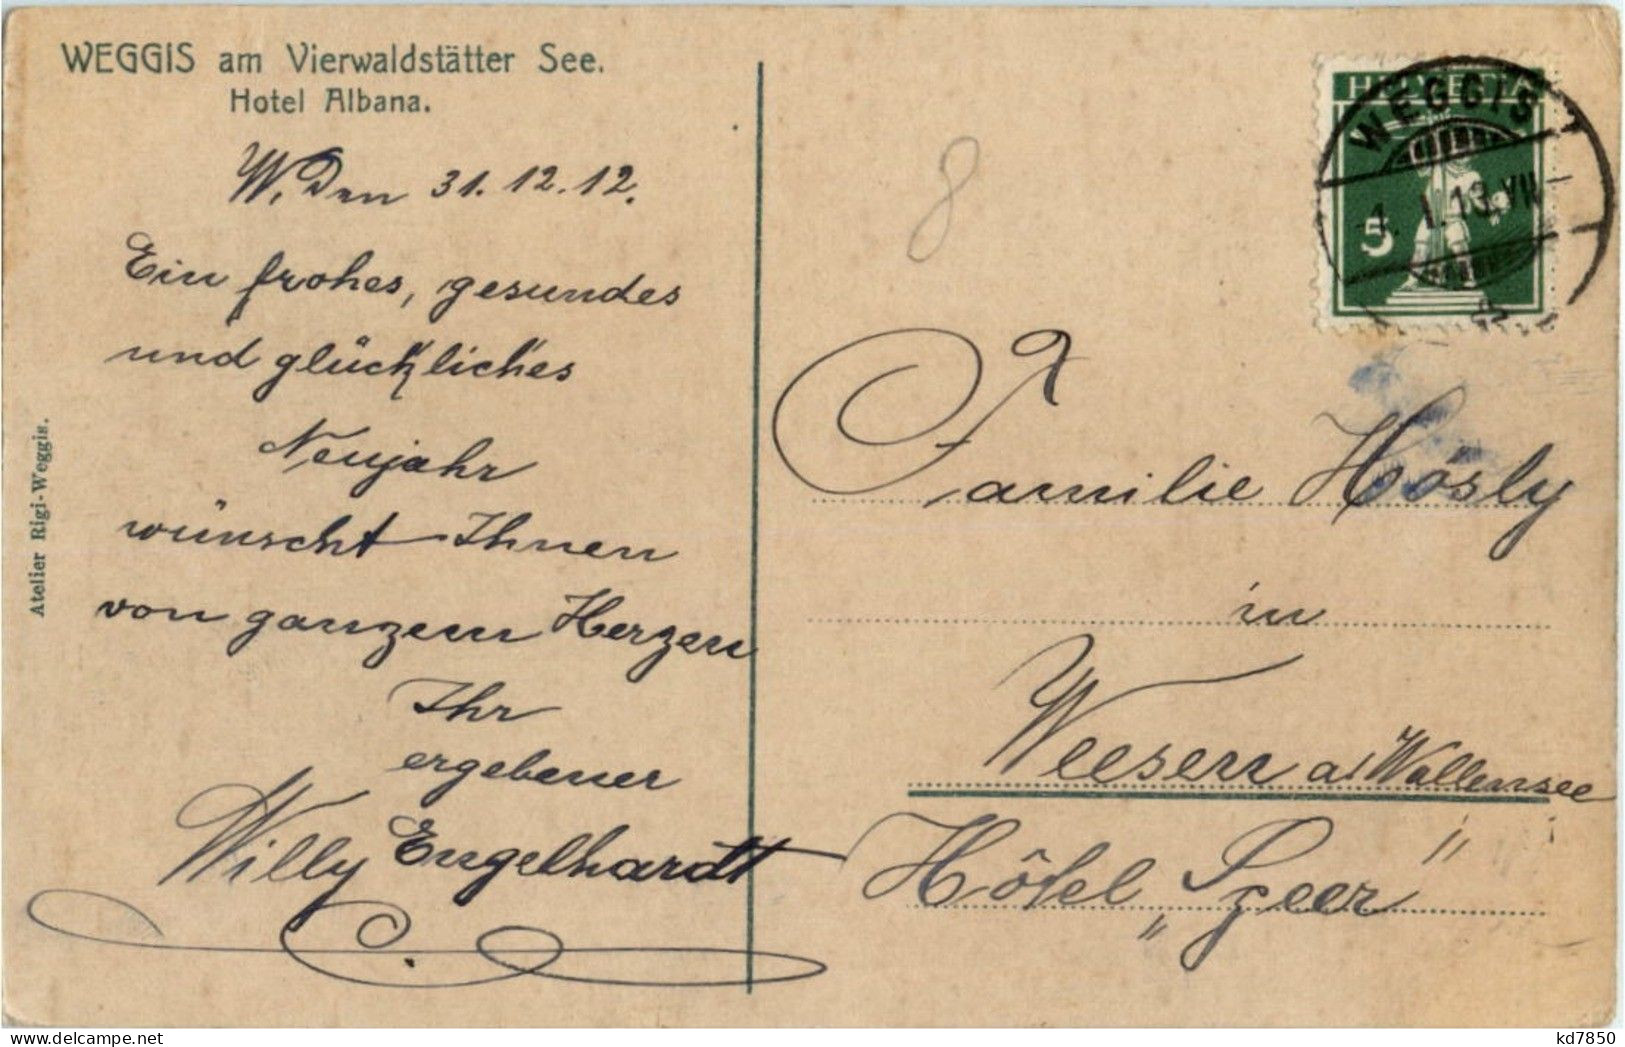 WEGGIS am Vierwaldstätter See.
Hotel Albana.
W. Den 31.12.12.
Ein frohes, gesundes
und glückliches
Neujahr
wünscht Ihnen
von ganzem Herzen
Ihr
ergebener
Willy Engelhardt
Atelier Rigi-Weggis.
8
HELVETIA
5
WEGGIS
-1. I. 13. VII
Familie Hösly
in
Weesen a/Wallensee
Hôtel „Speer"
kd7850